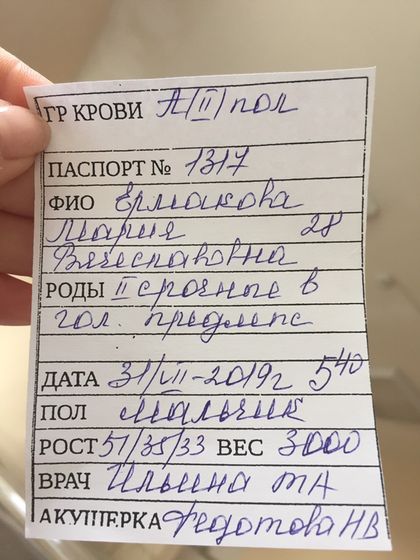 ГР КРОВИ А(II) пол
ПАСПОРТ № 1317
ФИО Ермакова
Мария 28
Вячеславовна
РОДЫ II срочные в
гол. предлеж
ДАТА 31/VII-2019г 5 40
ПОЛ Мальчик
РОСТ 51/35/33 ВЕС 3000
ВРАЧ Ильина ТН
АКУШЕРКА Федотова НВ